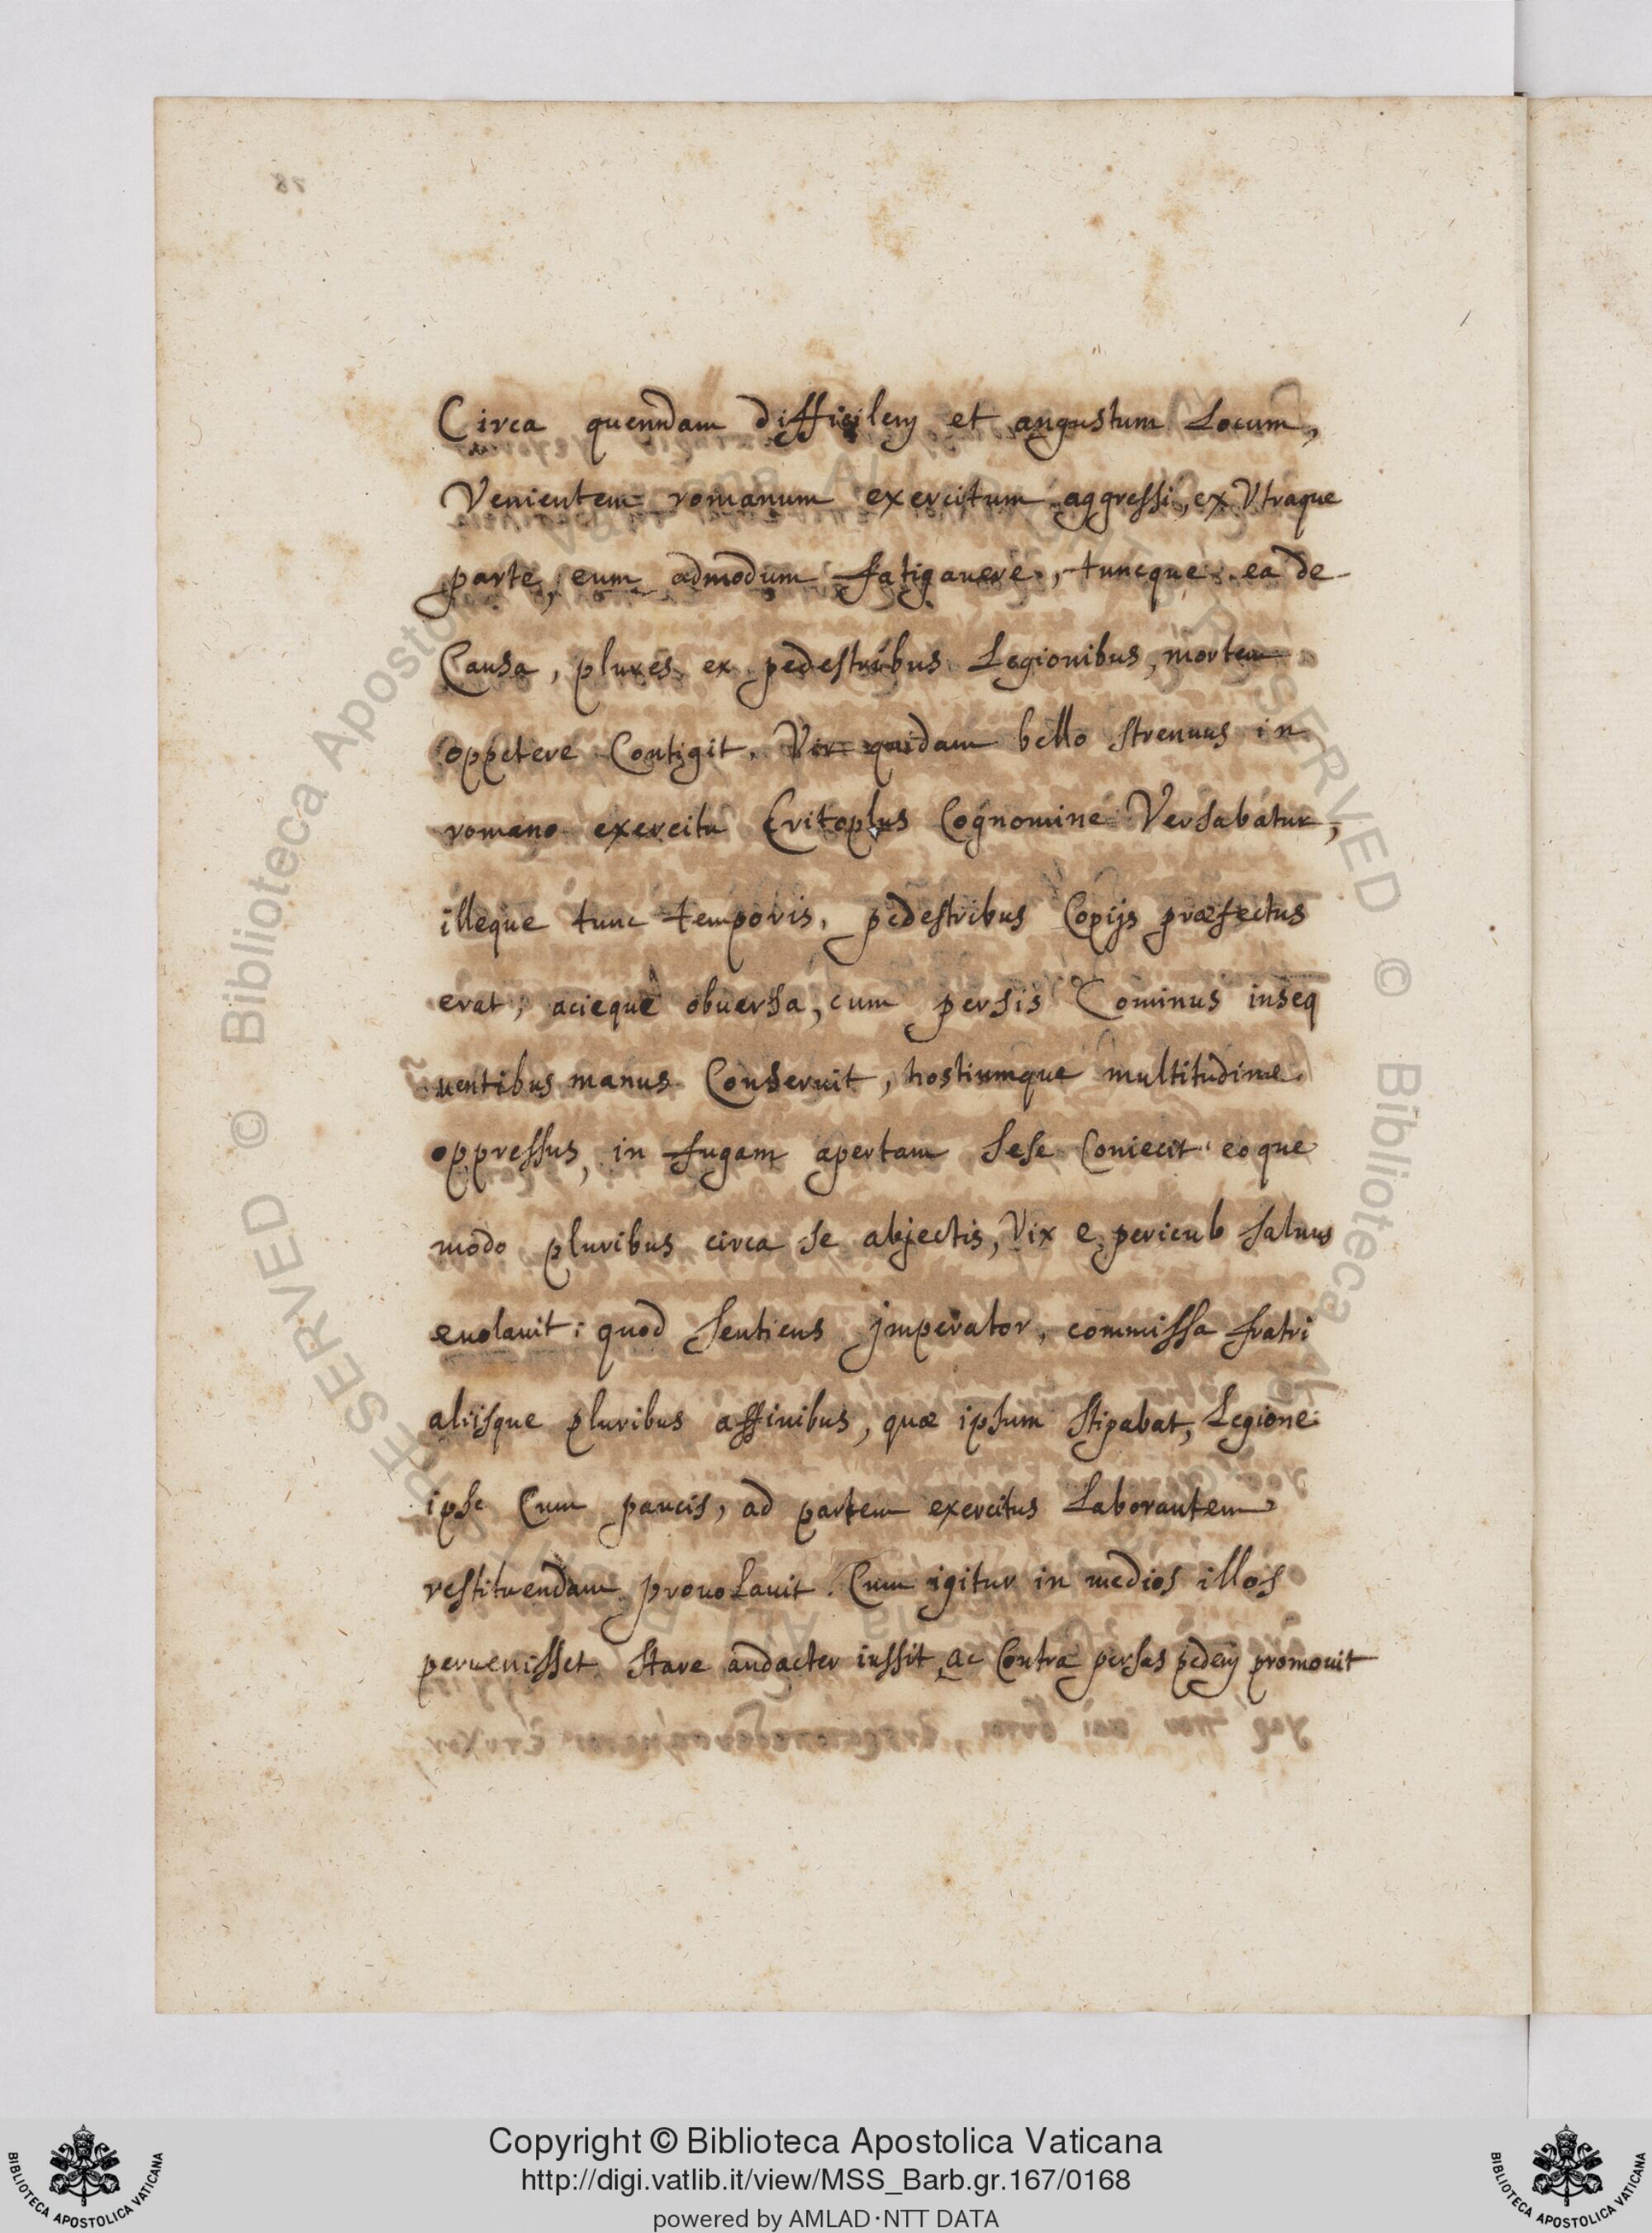 Circa quenndam difficilem et angustum Locum,
Venientem romanum exercitum aggressi, ex Vtraque
parte, eum admodum fatigauere, tuncque ea de
Causa, plures ex pedestribus Legionibus, mortem
oppetere Contigit. Vir quidam bello strenuus in
romano exercitu Critoplus Cognomine Versabatur,
illeque tunc temporis, pedestribus Copijs præfectus
erat, acieque obuersa, cum persis Cominus inseq
uentibus manus Conseruit, hostiumque multitudine
oppressus, in fugam apertam sese Coniecit eoque
modo pluribus circa se abjectis, Vix e periculo saluus
euolauit: quod sentiens jmperator, commissa fratri
aliisque pluribus affinibus, quæ ipsum stipabat, Legione
ipse Cum paucis, ad partem exercitus Laborantem
restituendam prouolauit. Cum igitur in medios illos
peruenisset stare audacter iussit ac Contra persas pedem promouit
Copyright © Biblioteca Apostolica Vaticana
http://digi.vatlib.it/view/MSS_Barb.gr.167/0168
powered by AMLAD·NTT DATA
BIBLIOTECA APOSTOLICA VATICANA
BIBLIOTECA APOSTOLICA VATICANA